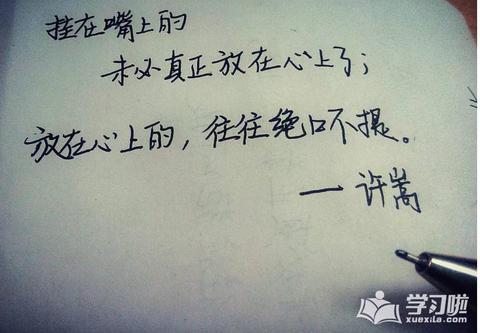 挂在嘴上的
未必真正放在心上了；
放在心上的，往往绝口不提。
一许嵩
学习啦
xuexila.com